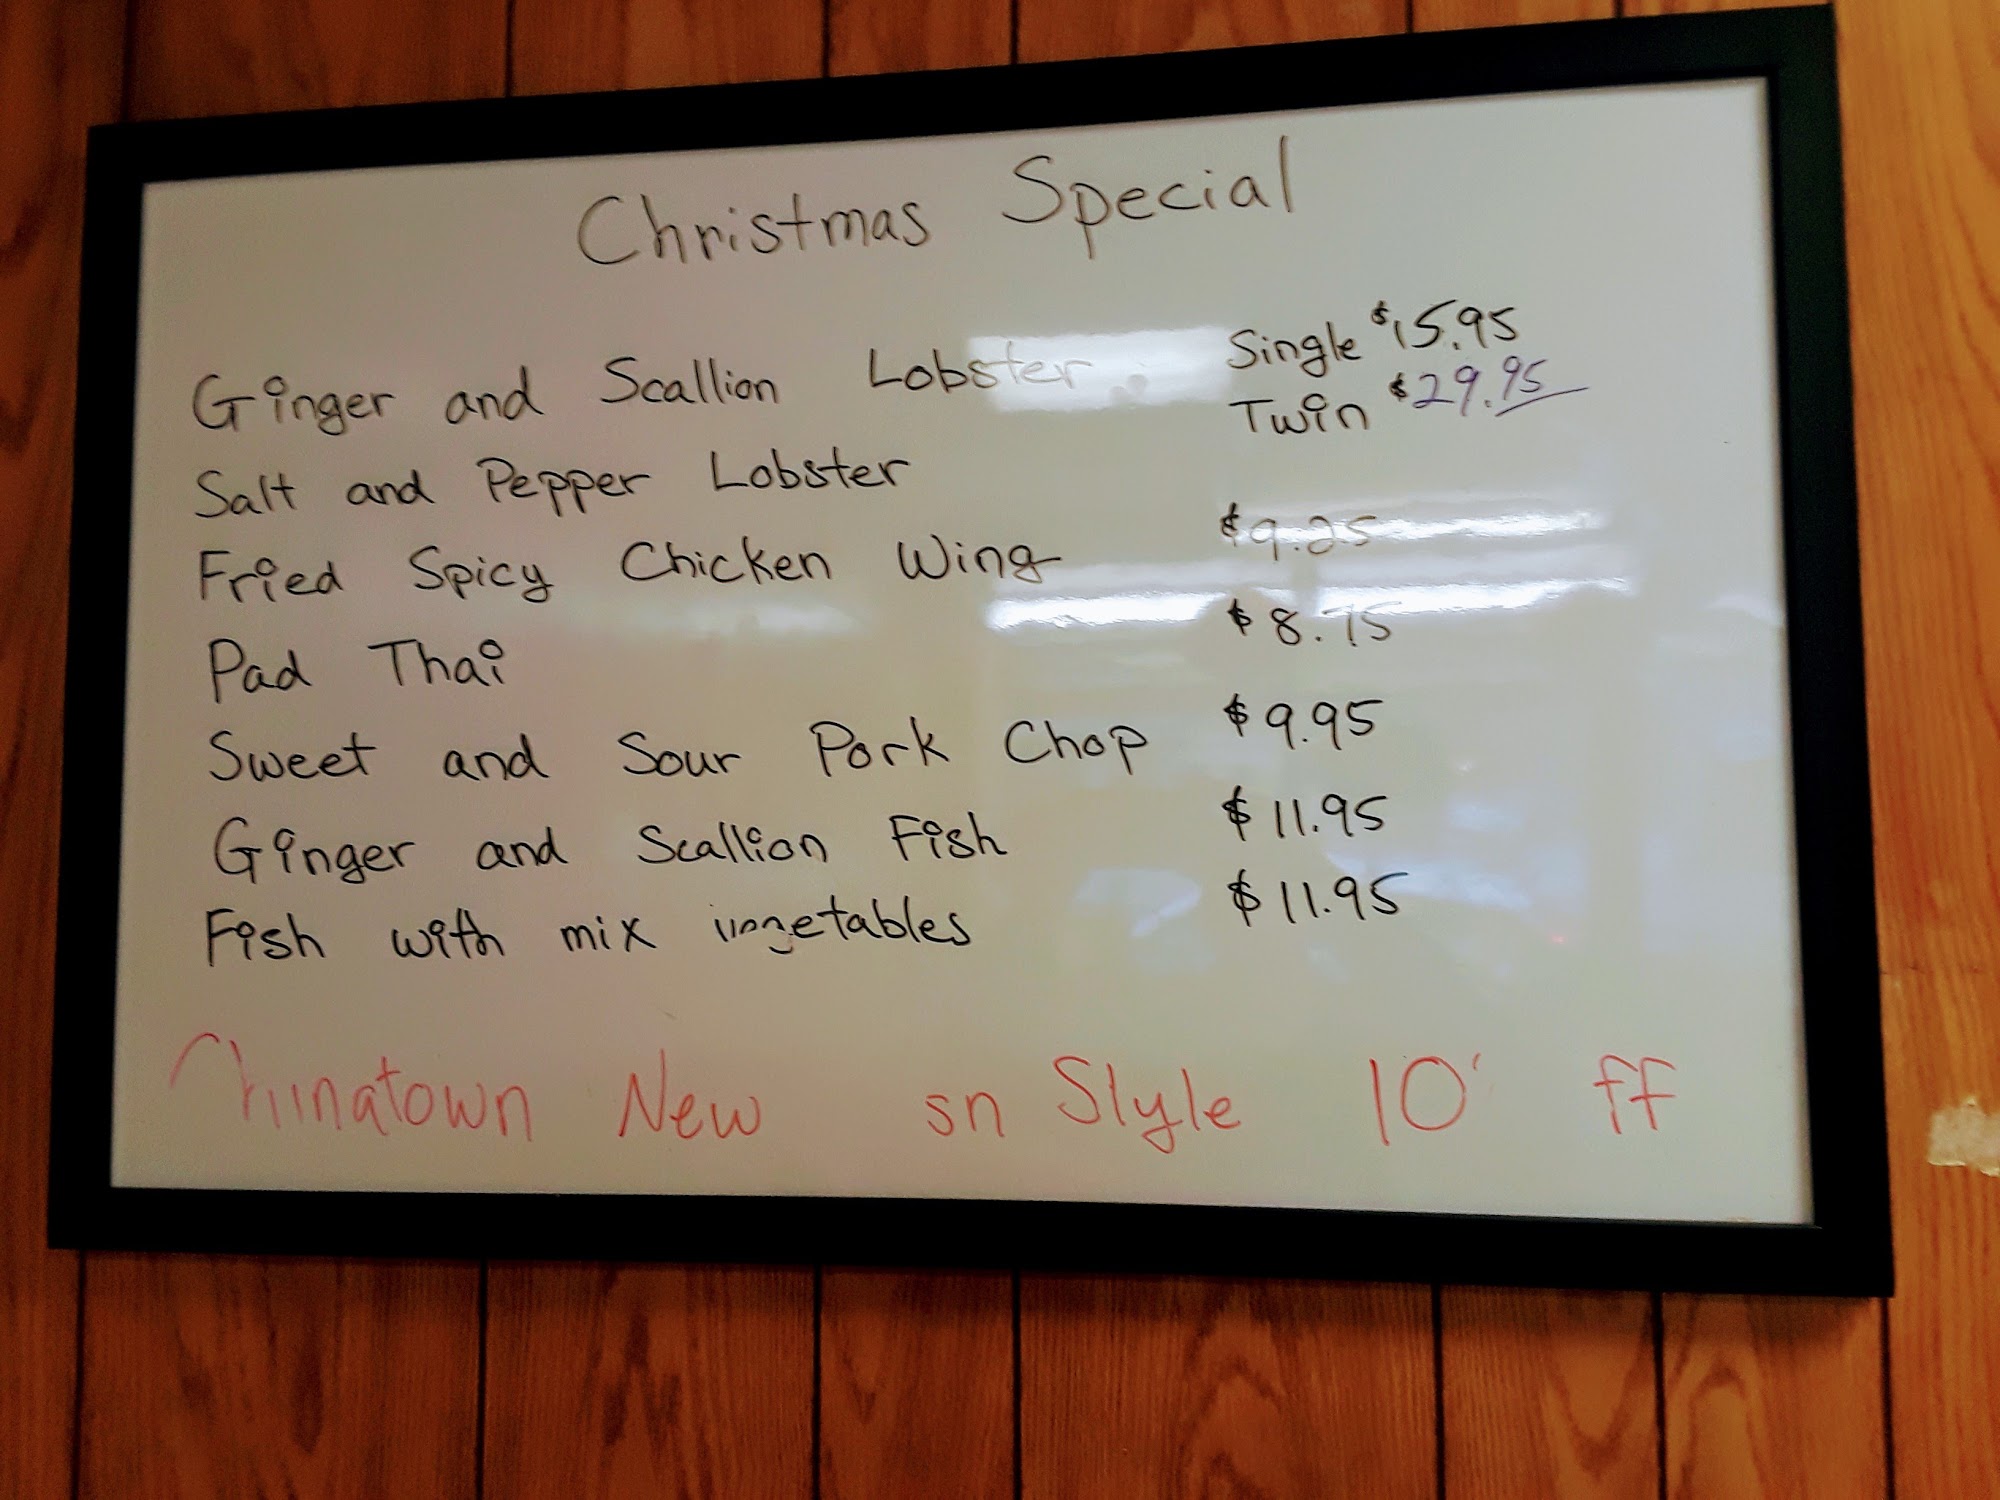 Christmas Special
Ginger and Scallion Lobster Single $15.95
Twin $29.95
Salt and Pepper Lobster
Fried Spicy Chicken Wing $9.25
Pad Thai $8.75
Sweet and Sour Pork Chop $9.95
Ginger and Scallion Fish $11.95
Fish with mix vegetables $11.95
Chinatown New Style 10